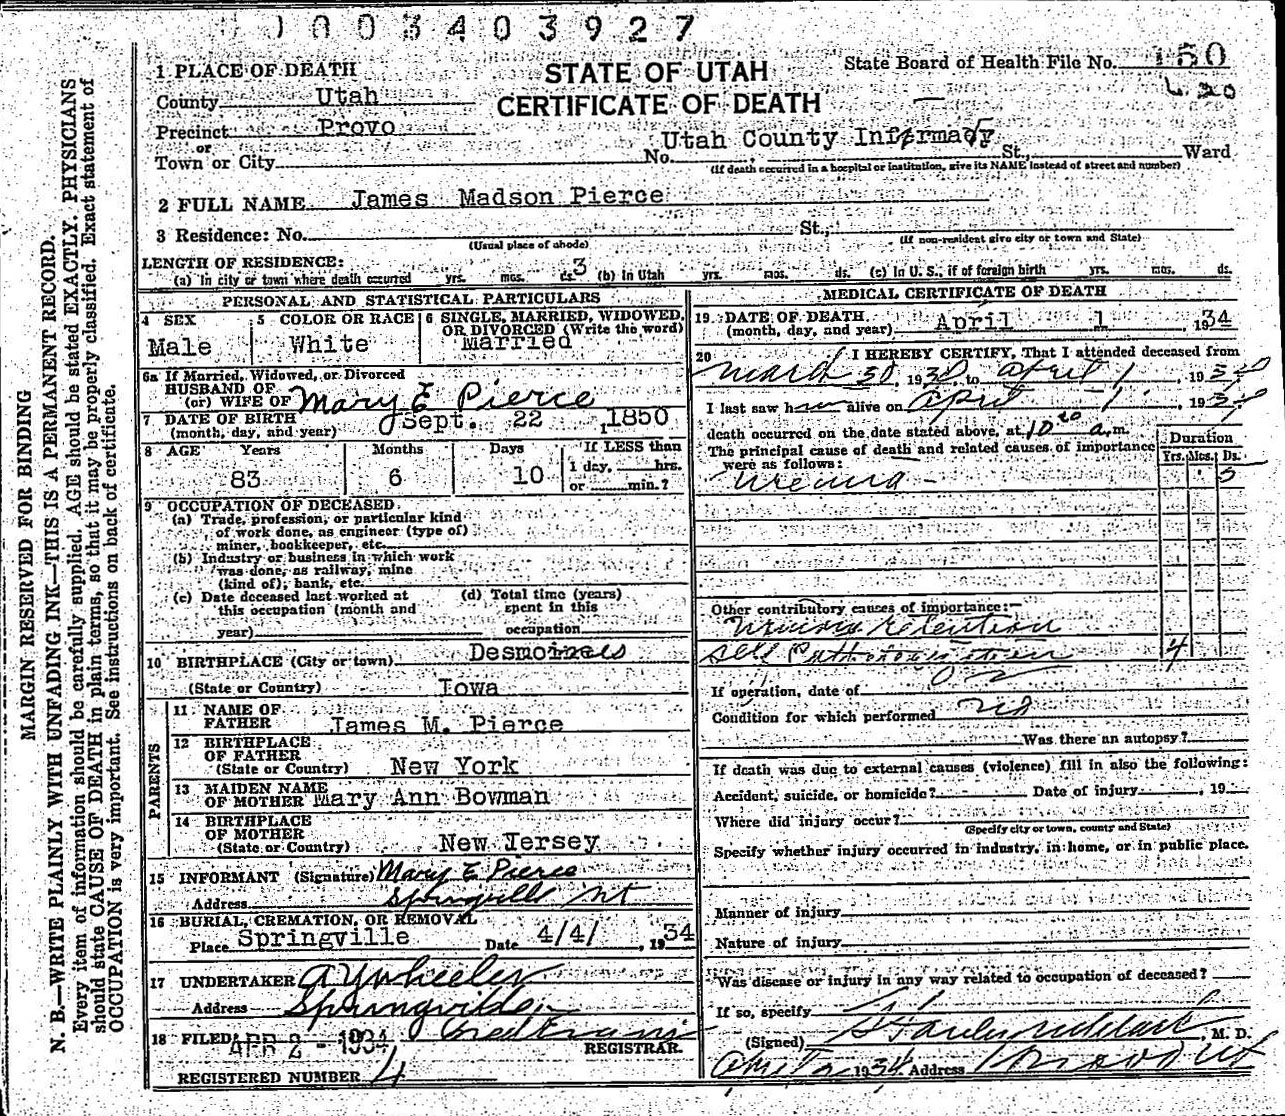 1003403927
1 PLACE OF DEATH
STATE OF UTAH
State Board of Health File No. 150
County Utah
CERTIFICATE OF DEATH
620
Precinct Provo
or
Utah County Infirmary
Town or City No. St., Ward
(If death occurred in a hospital or institution, give its NAME instead of street and number)
2 FULL NAME James Madson Pierce
3 Residence: No. St.,
(Usual place of abode) (If non-resident give city or town and State)
LENGTH OF RESIDENCE:
(a) In city or town where death occurred yrs. mos. 3 ds. (b) in Utah yrs. mos. ds. (c) In U. S., if of foreign birth yrs. mos. ds.
PERSONAL AND STATISTICAL PARTICULARS
4 SEX
Male
5 COLOR OR RACE
White
6 SINGLE, MARRIED, WIDOWED,
OR DIVORCED (Write the word)
Married
6a If Married, Widowed, or Divorced
HUSBAND OF
(or) WIFE OF Mary E Pierce
7 DATE OF BIRTH
(month, day, and year) Sept. 22, 1850
8 AGE Years Months Days If LESS than
1 day, hrs.
83 6 10 or min.?
9 OCCUPATION OF DECEASED
(a) Trade, profession, or particular kind
of work done, as engineer (type of)
miner, bookkeeper, etc.
(b) Industry or business in which work
was done, as railway, mine
(kind of), bank, etc.
(c) Date deceased last worked at
this occupation (month and
year)
(d) Total time (years)
spent in this
occupation
10 BIRTHPLACE (City or town) Desmoines
(State or Country) Iowa
PARENTS
11 NAME OF
FATHER James M. Pierce
12 BIRTHPLACE
OF FATHER
(State or Country) New York
13 MAIDEN NAME
OF MOTHER Mary Ann Bowman
14 BIRTHPLACE
OF MOTHER
(State or Country) New Jersey
15 INFORMANT (Signature) Mary E Pierce
Address Springville Ut
16 BURIAL, CREMATION, OR REMOVAL
Place Springville Date 4/4/, 1934
17 UNDERTAKER A Y Wheeler
Address Springville
18 FILED APR 2 - 1934 Fred Evans
REGISTRAR.
REGISTERED NUMBER 4
MEDICAL CERTIFICATE OF DEATH
19 DATE OF DEATH
(month, day, and year) April 1, 1934
20 I HEREBY CERTIFY, That I attended deceased from
March 30, 1930, to April 1, 1934
I last saw him alive on April 1, 1934
death occurred on the date stated above, at 10 20 a. m.
The principal cause of death and related causes of importance
were as follows:
Duration
Yrs. Mos. Ds.
Uremia - 3
Other contributory causes of importance:—
Urinary retention
4
If operation, date of
Condition for which performed no
Was there an autopsy?
If death was due to external causes (violence) fill in also the following:
Accident, suicide, or homicide? Date of injury, 19
Where did injury occur?
(Specify city or town, county and State)
Specify whether injury occurred in industry, in home, or in public place.
Manner of injury
Nature of injury
Was disease or injury in any way related to occupation of deceased?
If so, specify
(Signed) M. D.
1934 Address Provo Ut
MARGIN RESERVED FOR BINDING
N. B.—WRITE PLAINLY WITH UNFADING INK—THIS IS A PERMANENT RECORD.
Every item of information should be carefully supplied. AGE should be stated EXACTLY. PHYSICIANS
should state CAUSE OF DEATH in plain terms, so that it may be properly classified. Exact statement of
OCCUPATION is very important. See instructions on back of certificate.